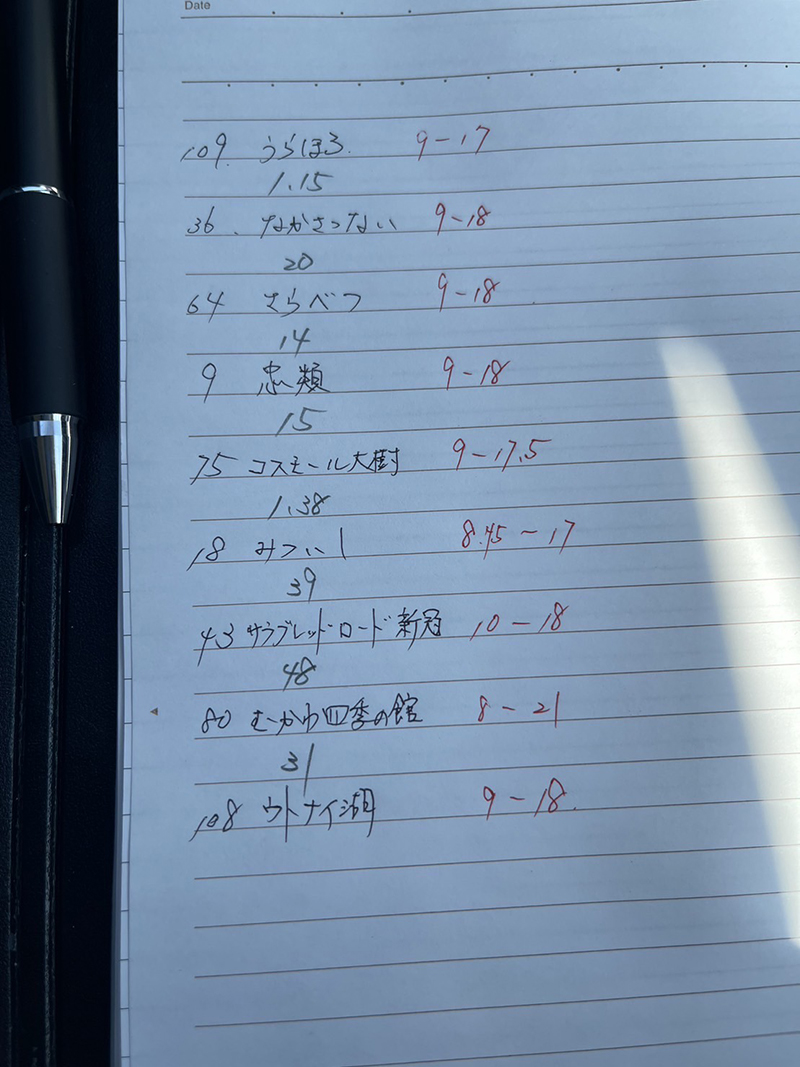 Date
109. うらほろ. 9-17
1.15
36. なかさつない 9-18
20
64 さらべつ 9-18
14
9 忠類 9-18
15
75 コスモール大樹 9-17.5
1.38
18 みついし 8.45-17
39
43 サラブレッドロード新冠 10-18
48
80 むかわ四季の館 8-21
31
108 ウトナイ湖 9-18.